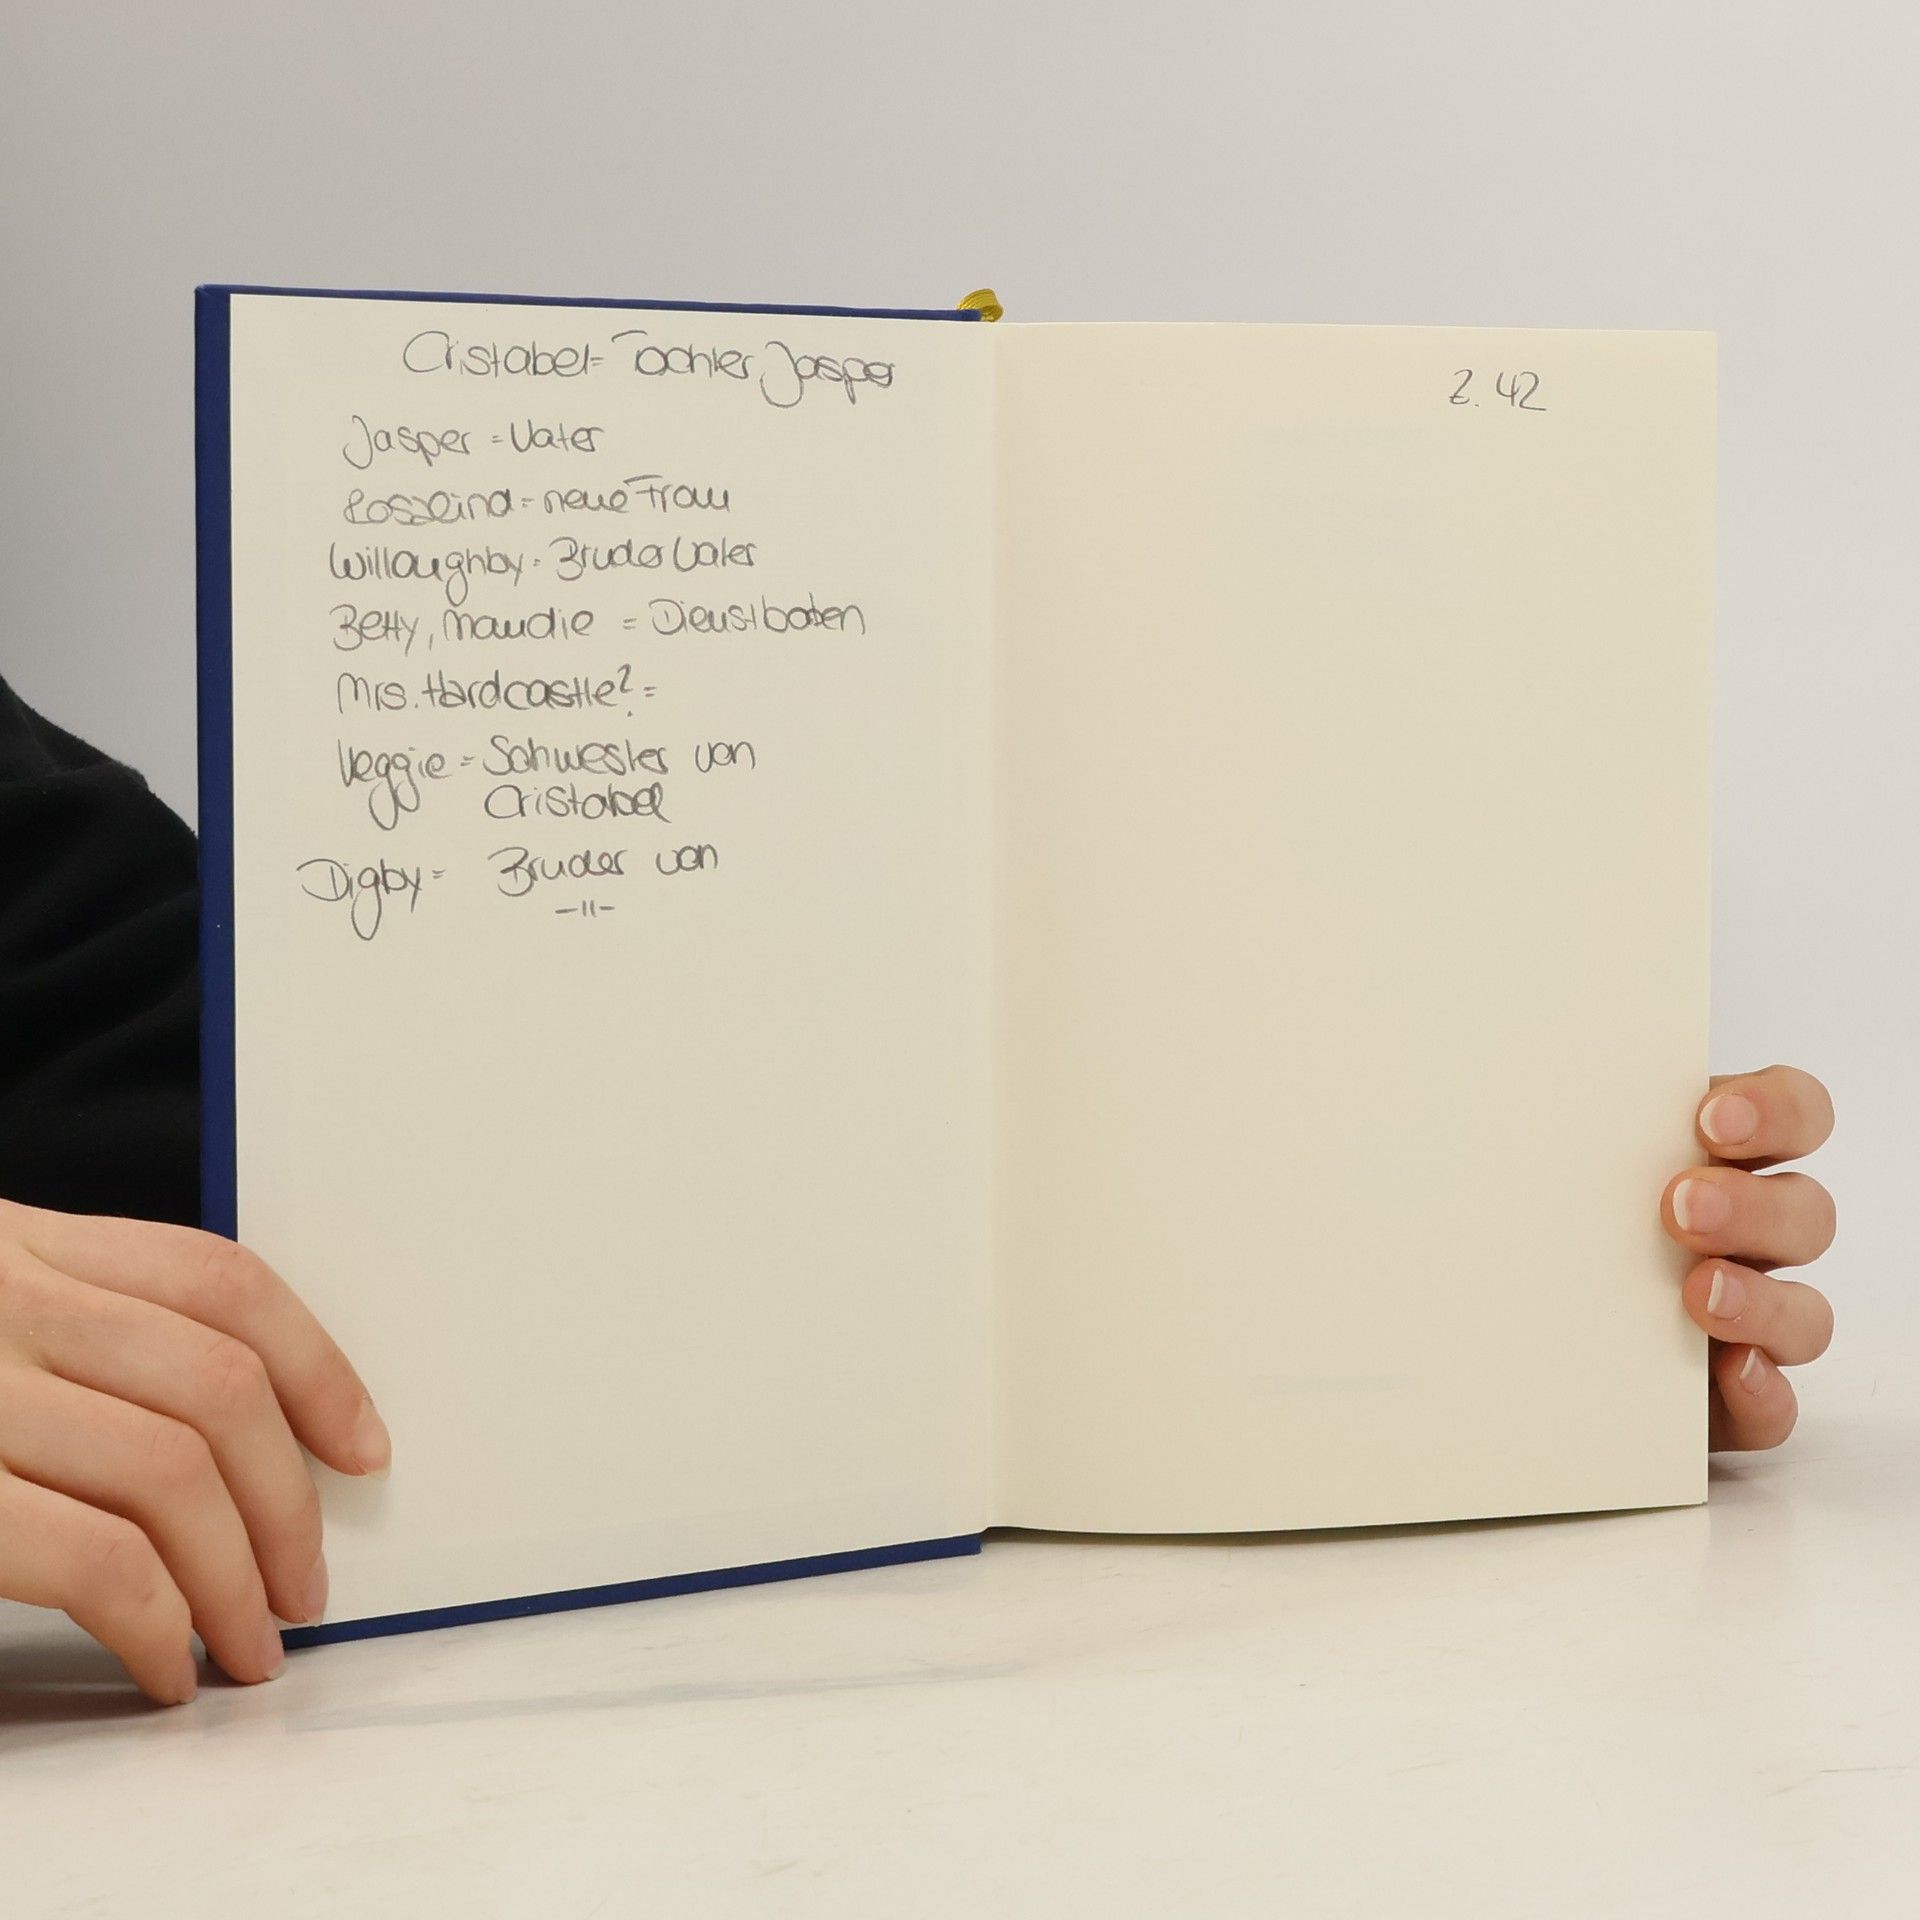 Cristabel = Tochter Jasper
Jasper = Vater
Rosalind = neue Frau
Willoughby = Bruder Vater
Betty, Maudie = Dienstboten
Mrs. Hardcastle? =
Veggie = Schwester von
Cristabel
Digby = Bruder von
–II–
Z. 42